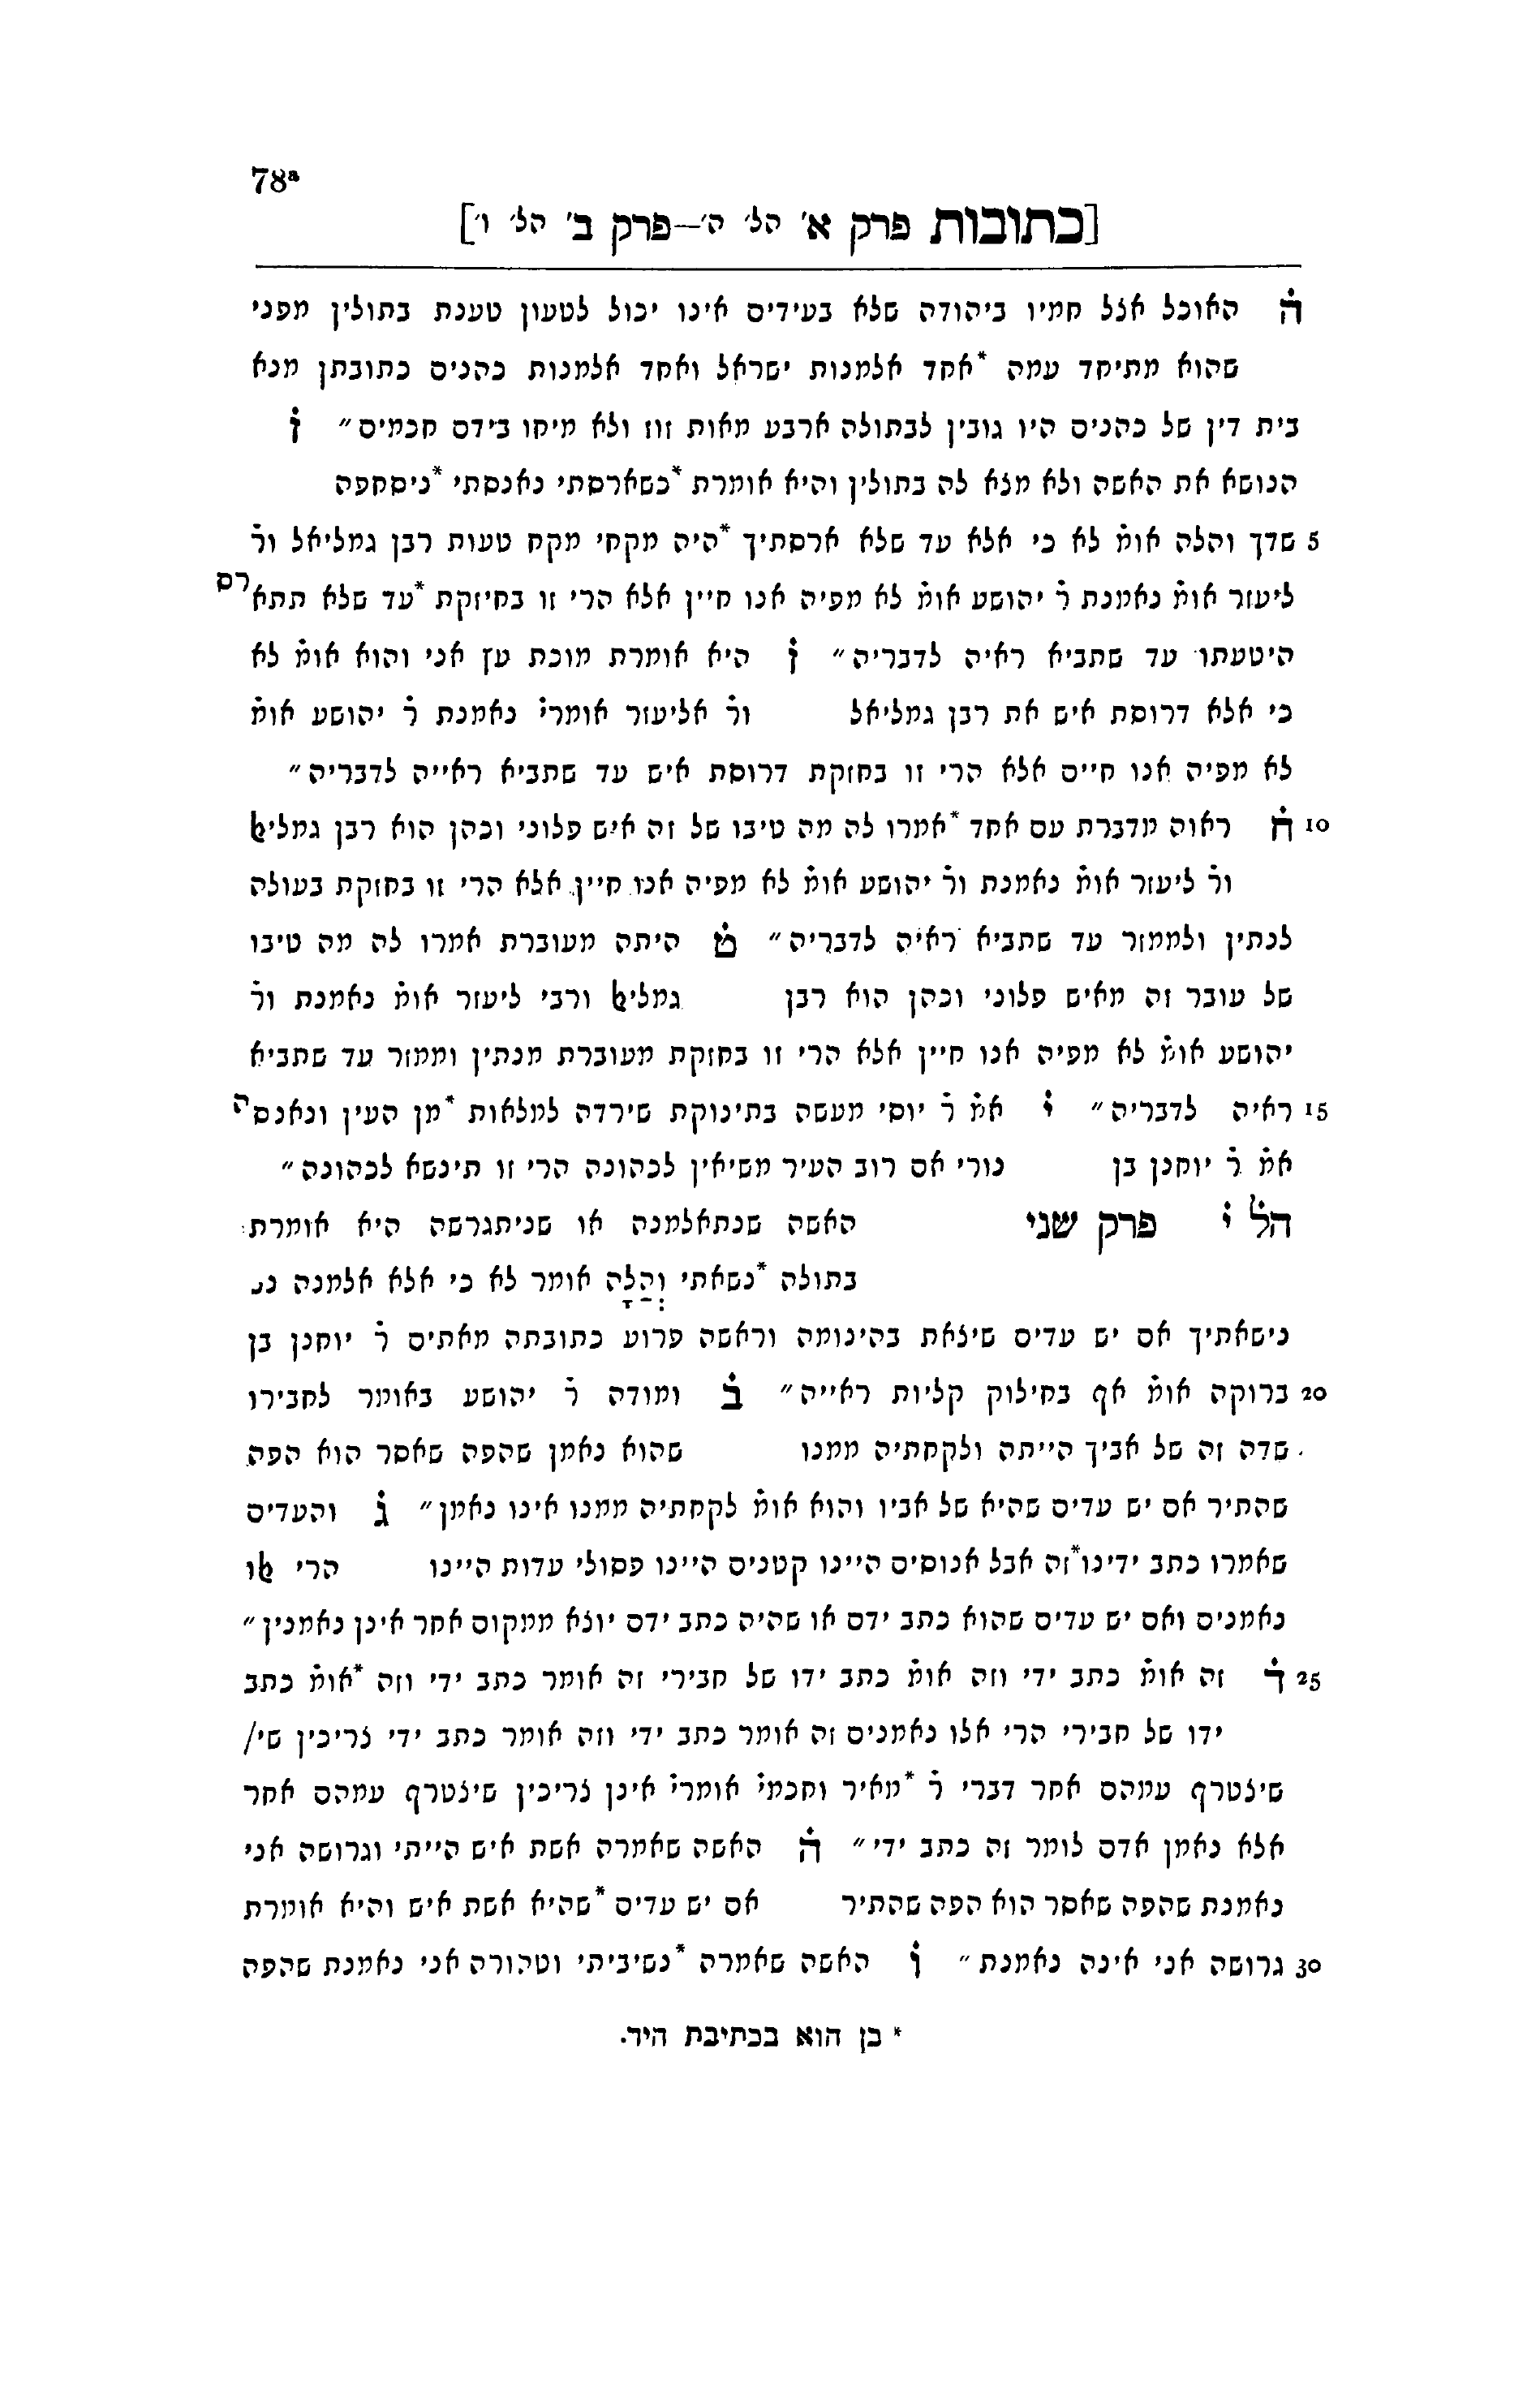 78a
[כתובות פרק א׳ הל׳ ה׳—פרק ב׳ הל׳ ו׳]
הׄ האוכל אצל חמיו ביהודה שלא בעידים אינו יכול לטעון טענת בתולין מפני
שהוא מתיחד עמה *אחד אלמנות ישראל ואחד אלמנות כהנים כתובתן מנא
בית דין של כהנים היו גובין לבתולה ארבע מאות זוז ולא מיחו בידם חכמים״ וׄ
הנושא את האשה ולא מצא לה בתולין והיא אומרת *כשארסתי נאנסתי *ניסחפה
5 שדך והלה אומׄ לא כי אלא עד שלא ארסתיך *היה מקחי מקח טעות רבן גמליאל ורׄ
ליעזר אומׄ נאמנת רׄ יהושע אומׄ לא מפיה אנו חיין אלא הרי זו בחיזקת *עד שלא תתארס
היטעתו עד שתביא ראיה לדבריה״ זׄ היא אומרת מוכת עץ אני והוא אומׄ לא
כי אלא דרוסת איש את רבן גמליאל ורׄ אליעזר אומריׄ נאמנת רׄ יהושע אומׄ
לא מפיה אנו חיים אלא הרי זו בחזקת דרוסת איש עד שתביא ראייה לדבריה״
10 חׄ ראוה מדברת עם אחד *אמרו לה מה טיבו של זה איש פלוני וכהן הוא רבן גמליﭏ
ורׄ ליעזר אומׄ נאמנת ורׄ יהושע אומׄ לא מפיה אנו חיין אלא הרי זו בחזקת בעולה
לנתין ולממזר עד שתביא ראיה לדבריה״ טׄ היתה מעוברת אמרו לה מה טיבו
של עובר זה מאיש פלוני וכהן הוא רבן גמליﭏ ורבי ליעזר אומׄ נאמנת ורׄ
יהושע אומׄ לא מפיה אנו חיין אלא הרי זו בחזקת מעוברת מנתין וממזר עד שתביא
15 ראיה לדבריה״ יׄ אמׄ רׄ יוסי מעשה בתינוקת שירדה למלאות *מן העין ונאנסה
אמׄ רׄ יוחנן בן נורי אם רוב העיר משיאין לכהונה הרי זו תינשא לכהונה״
הלׄ יׄ פרק שני האשה שנתאלמנה או שניתגרשה היא אומרת
בתולה *נשאתי וְהַלָּה אומר לא כי אלא אלמנה
נישאתיך אם יש עדים שיצאת בהינומה וראשה פרוע כתובתה מאתים רׄ יוחנן בן
20 ברוקה אומׄ אף בחילוק קליות ראייה״ בׄ ומודה רׄ יהושע באומר לחבירו
שדה זה של אביך הייתה ולקחתיה ממנו שהוא נאמן שהפה שאסר הוא הפה
שהתיר אם יש עדים שהיא של אביו והוא אומׄ לקחתיה ממנו אינו נאמן״ גׄ והעדים
שאמרו כתב ידינו*זה אבל אנוסים היינו קטנים היינו פסולי עדות היינו הרי ﭏו
נאמנים ואם יש עדים שהוא כתב ידם או שהיה כתב ידם יוצא ממקום אחר אינן נאמנין״
25 דׄ זה אומׄ כתב ידי וזה אומׄ כתב ידו של חבירי זה אומר כתב ידי וזה *אומׄ כתב
ידו של חבירי הרי אלו נאמנים זה אומר כתב ידי וזה אומר כתב ידי צריכין שי/
שיצטרף עמהם אחר דברי רׄ *מאיר וחכמיׄ אומריׄ אינן צריכין שיצטרף עמהם אחר
אלא נאמן אדם לומר זה כתב ידי״ הׄ האשה שאמרה אשת איש הייתי וגרושה אני
נאמנת שהפה שאסר הוא הפה שהתיר אם יש עדים *שהיא אשת איש והיא אומרת
30 גרושה אני אינה נאמנת״ וׄ האשה שאמרה *נשיביתי וטהורה אני נאמנת שהפה
* כן הוא בכתיבת היד.